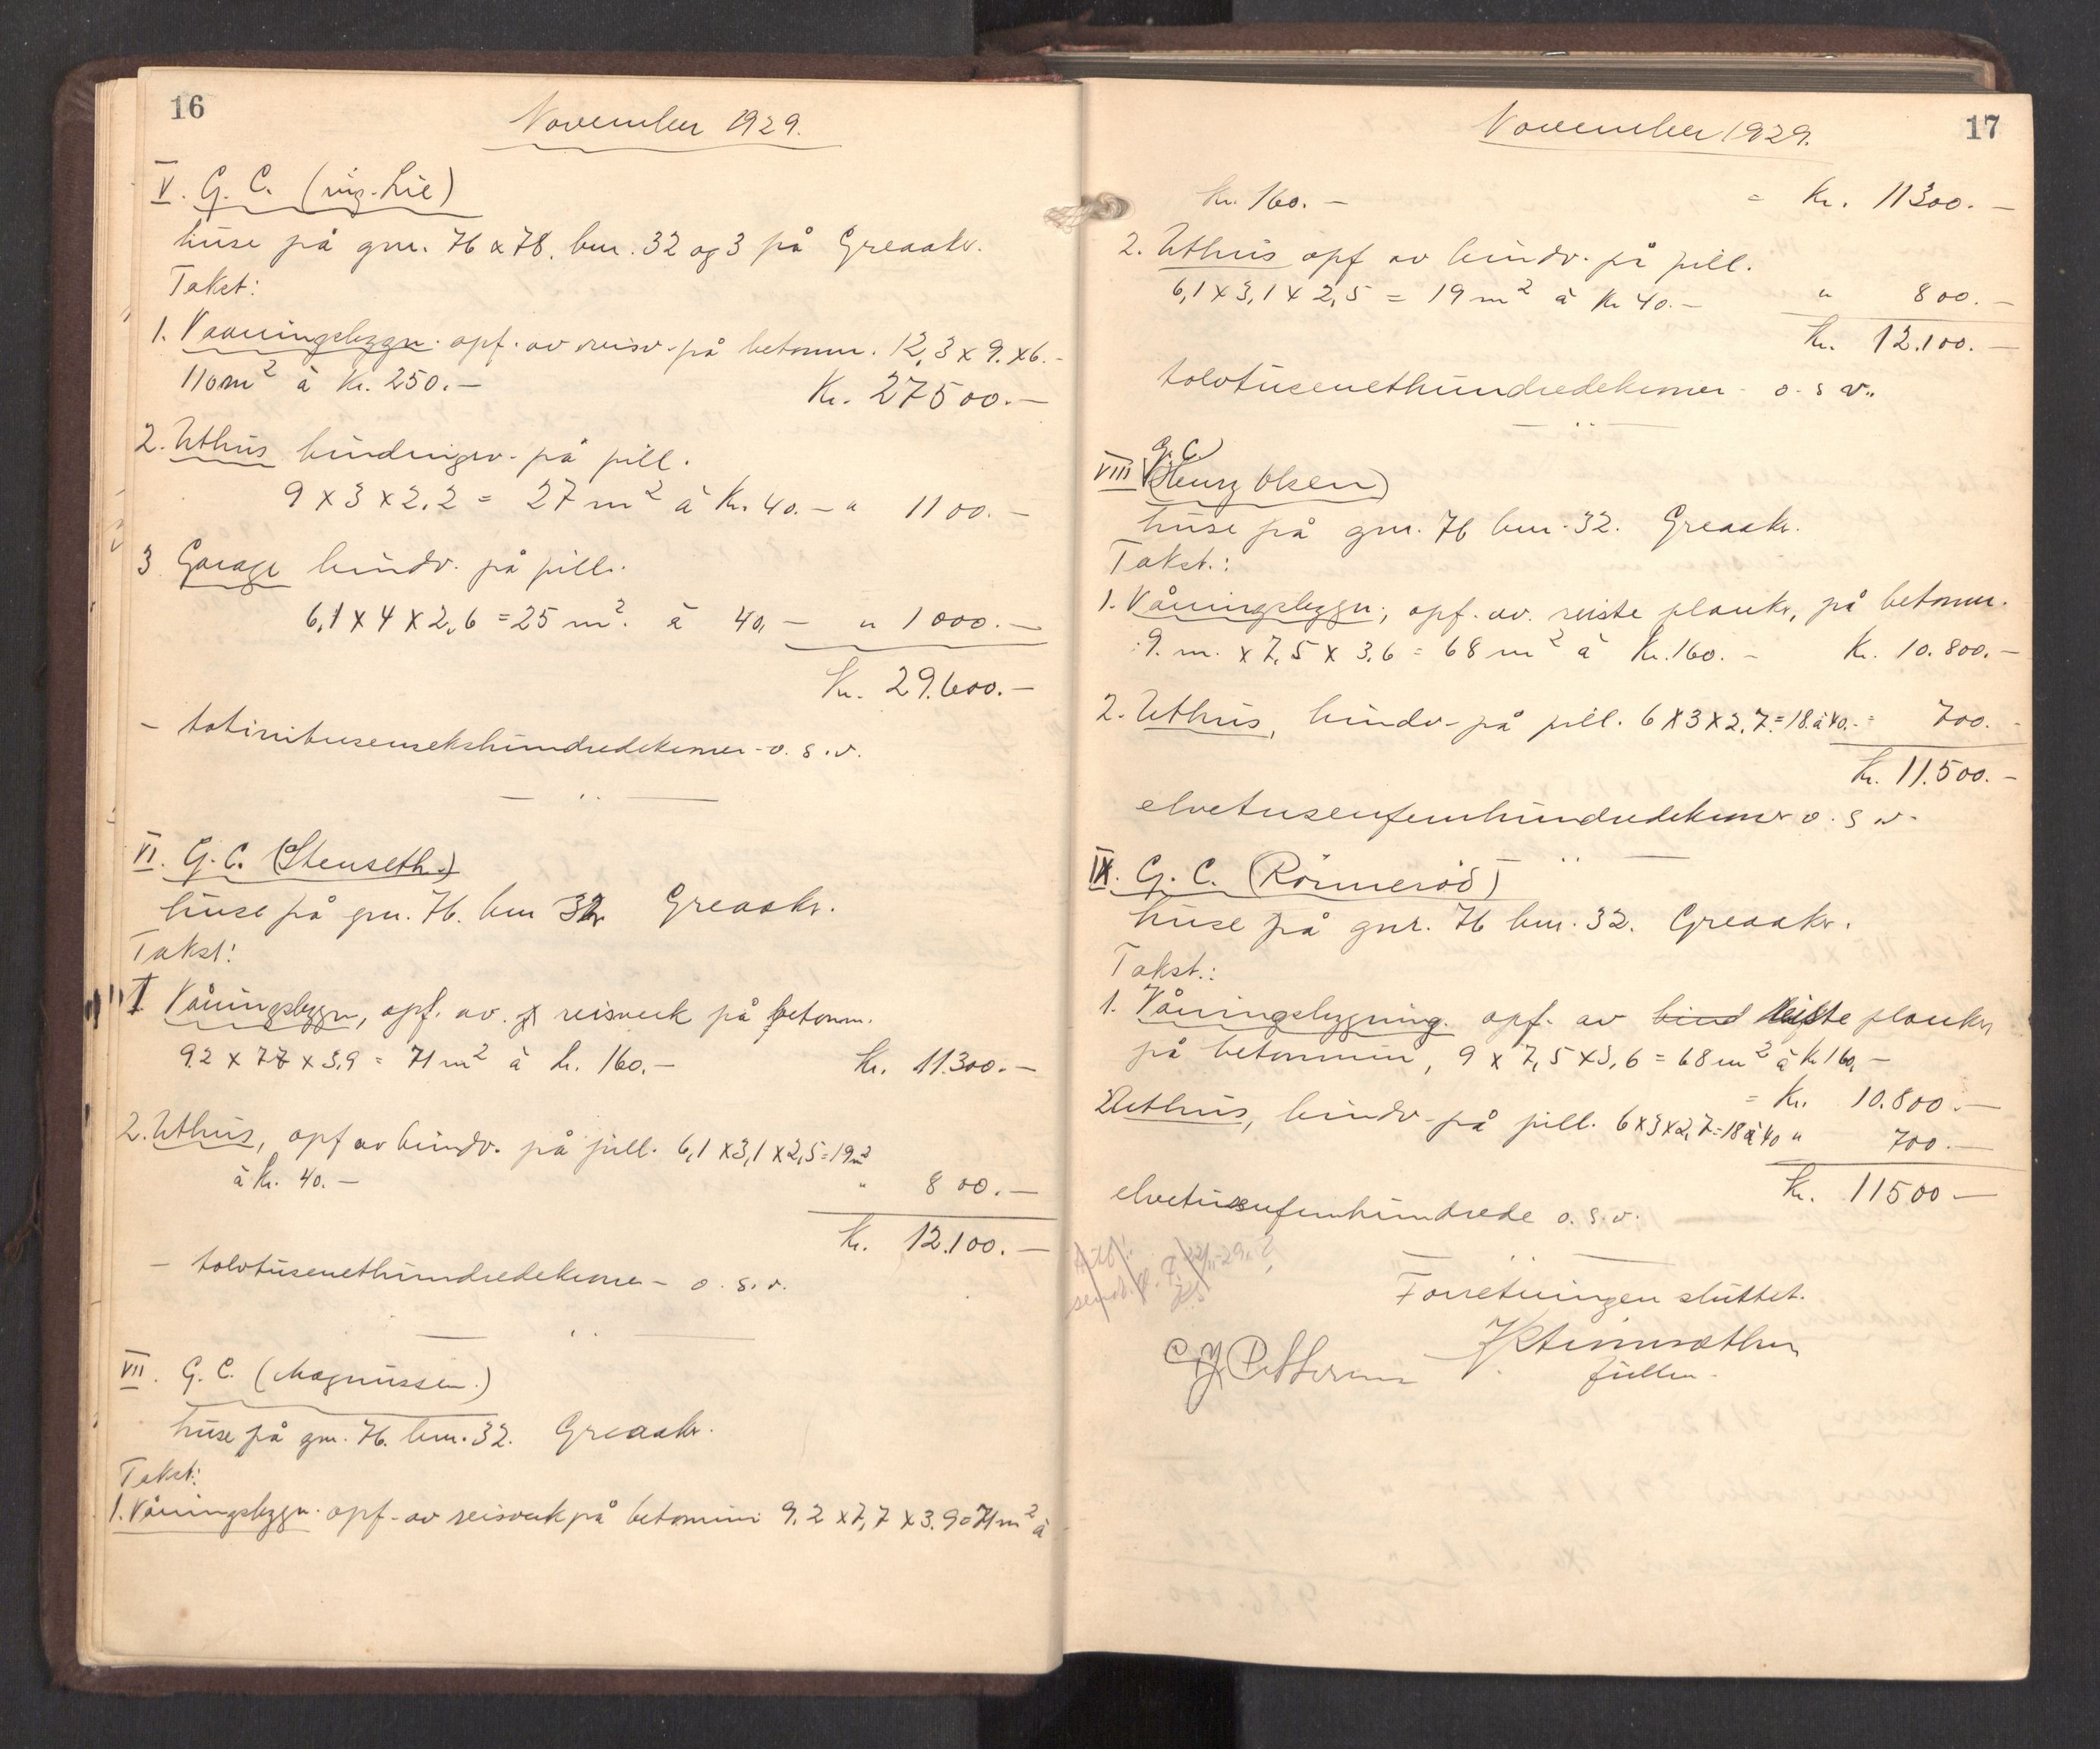 16
November 1929.
V. G. C. (ing. Lie)
huse på gnr. 76 & 78. bnr. 32 og 3 på Greaaker.
Takst:
1. Vaaningsbygn. opf. av reisv. på betonm. 12,3 x 9. x 6.-
110 m² à Kr. 250.— Kr. 27500.—
2. Uthus bindingsv. på pill.
9 x 3 x 2.2 = 27 m² à Kr. 40.— " 1100.—
3 Garage bindv. på pill.
6,1 x 4 x 2,6 = 25 m². à 40,— " 1000.—
Kr. 29.600.—
- totinitusensekshundredekroner - o. s. v.
VI. G. C. (Stenseth.)
huse på gnr. 76. bnr 32 Greaaker.
Takst:
1 Våningsbygn, opf. av. reisverk på betonm.
9.2 x 7.7 x 3.9 = 71 m² à kr. 160.— Kr. 11.300.—
2. Uthus, opf av bindv. på pill. 6,1 x 3,1 x 2,5 = 19 m²
à kr. 40.— " 800.—
Kr. 12.100.—
- tolvtusenethundredekroner - o. s. v.
VII. G. C. (Magnussen.)
huse på gnr. 76. bnr. 32. Greaaker.
Takst:
1. Våningsbygn. opf. av reisverk på betonmur 9,2 x 7,7 x 3.9 = 71 m² à
November 1929.
17
Kr. 160.— = Kr. 11300.—
2. Uthus opf av bindv. på pill.
6,1 x 3,1 x 2,5 = 19 m² à Kr 40.— " 800.—
Kr. 12.100.—
tolvtusenethundredekroner - o. s v..
G. C.
VIII (Henry Olsen)
huse på gnr. 76 bnr. 32. Greaaker.
Takst.:
1. Våningsbygn., opf. av. reiste planker, på betonm.
9. m. x 7,5 x 3,6 = 68 m² à Kr. 160.— Kr. 10.800.—
2. Uthus, bindv. på pill. 6 x 3 x 2,7 = 18. à 40.- = 700.-
Kr. 11.500.—
elvetusenfemhundredekroner o. s v.
IX. G. C. (Rønnerød)
huse på gnr. 76 bnr. 32. Greaaker.
Takst.:
1. Våningsbygning. opf. av bind reiste planker
på betonmur, 9 x 7,5 x 3,6 = 68 m² à Kr 160,—
= Kr. 10.800.—
2 Uthus, bindv. på pill. 6 x 3 x 2,7 = 18 à 40 " 700.—
Kr. 11500—
elvetusenfemhundrede o. s. v.
22/11-29.
Forretningen sluttet.